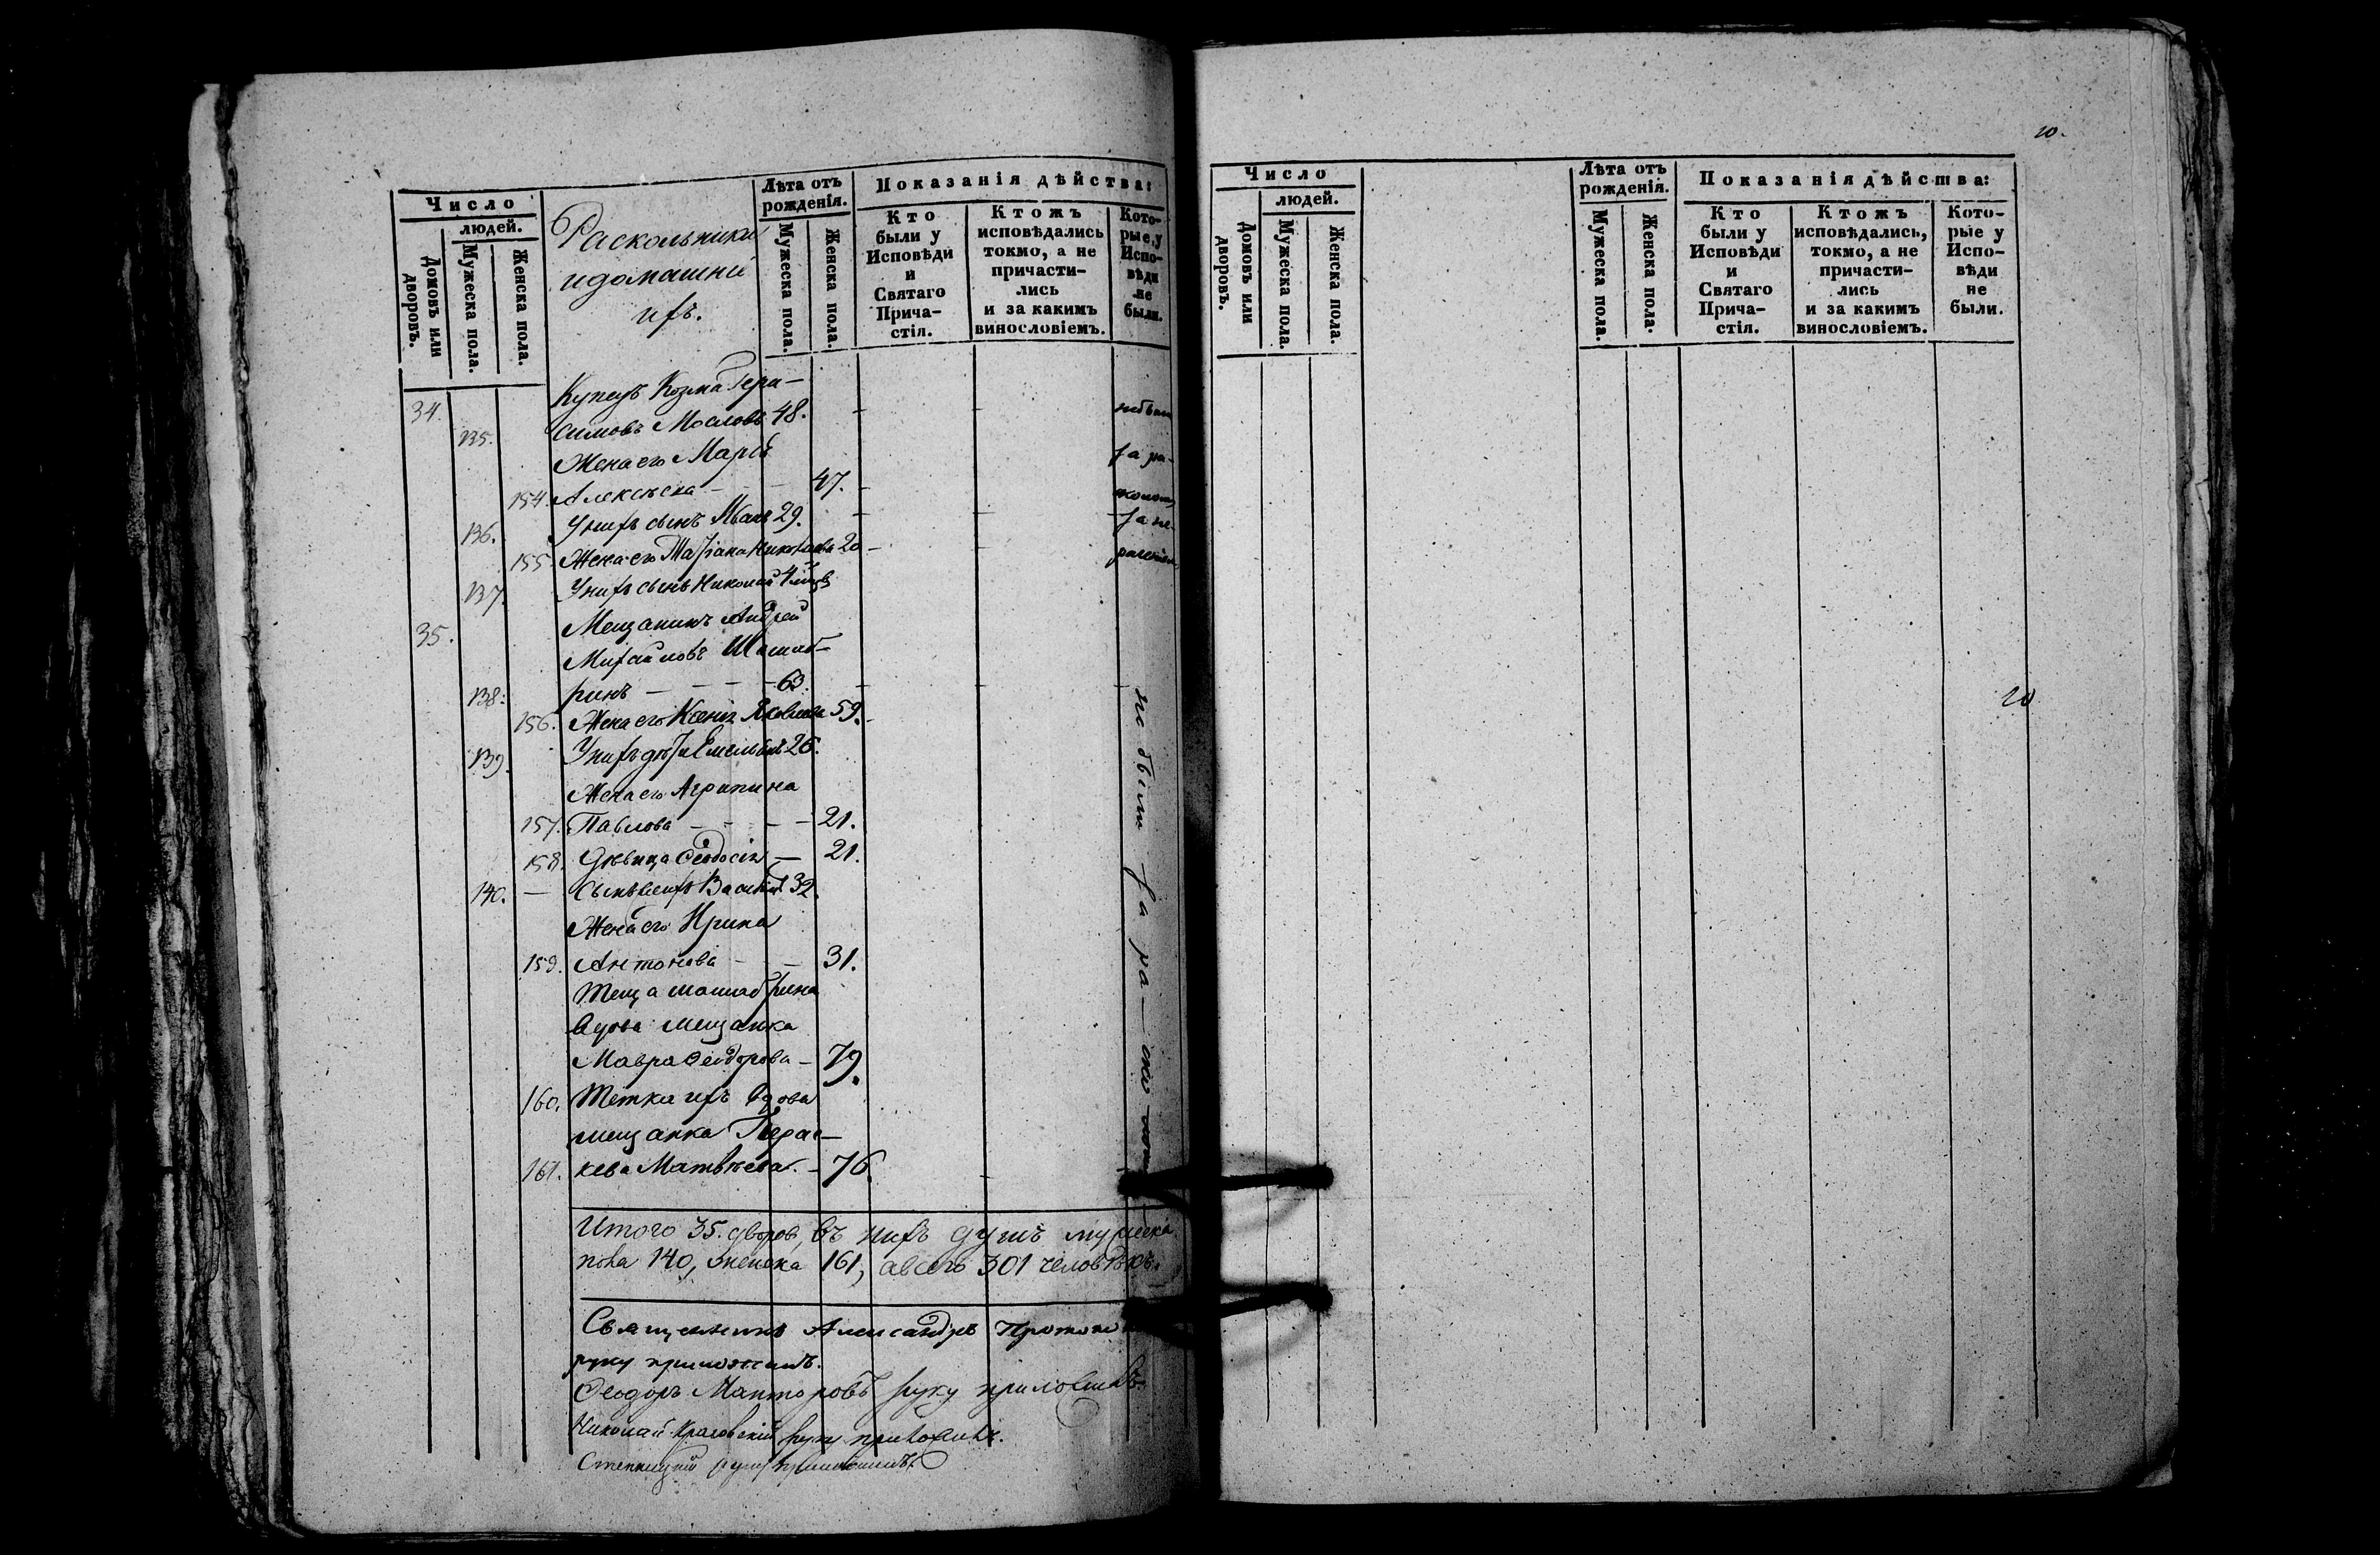 Число
людей.
Домовъ или дворовъ.
Мужеска пола.
Женска пола.
Раскольники
и домашніи
ихъ.
Лѣта отъ
рожденія.
Мужеска пола.
Женска пола.
Показанія дѣйства:
Кто
были у
Исповѣди
и
Святаго
Прича-
стія.
Ктожъ
исповѣдались
токмо, а не
причасти-
лись
и за какимъ
винословіемъ.
Кото-
рые у
Испо-
вѣди
не
были.
Купецъ Козма Гера-
34. 135. симовъ Масловъ 48. - - небыли
Жена его Марѳа за ра-
154. Алексѣева - - - 47. -
136. У нихъ сынъ Иванъ 29. - - за не-
155. Жена его Татіана Николаева 20 - -
137. У нихъ сынъ Николай 4
35. Мещанинъ Андрей
Михайловъ Шашаб-
138. ринъ - - - - 63. - - -
156. Жена его Ксенія Яковлева 59. -
139. У нихъ дѣти Емельянъ 26.
Жена его Агрипина
157. Павлова - - - - 21.
158. Дѣвица Ѳеодосія - 21.
140. - Сынъ ихъ Василій 32.
Жена его Ирина
159. Антонова - - 31.
Теща Шашабрина
вдова мещанка
Мавра Ѳеодорова - 79.
160. Тетка ихъ вдова
мещанка Парас-
161. кева Матвѣева. - 76.
не были за ра-
Итого 35. дворов, въ нихъ душъ мужеска
пола 140, женска 161, а всего 301 человѣкъ.
Священникъ Александръ
руку приложилъ.
Ѳеодоръ руку приложилъ.
Николай руку приложилъ.
руку приложилъ.
20.
Число
людей.
Домовъ или дворовъ.
Мужеска пола.
Женска пола.
Лѣта отъ
рожденія.
Мужеска пола.
Женска пола.
Показанія дѣйства:
Кто
были у
Исповѣди
и
Святаго
Прича-
стія.
Ктожъ
исповѣдались,
токмо, а не
причасти-
лись
и за какимъ
винословіемъ.
Кото-
рые у
Испо-
вѣди
не
были.
20